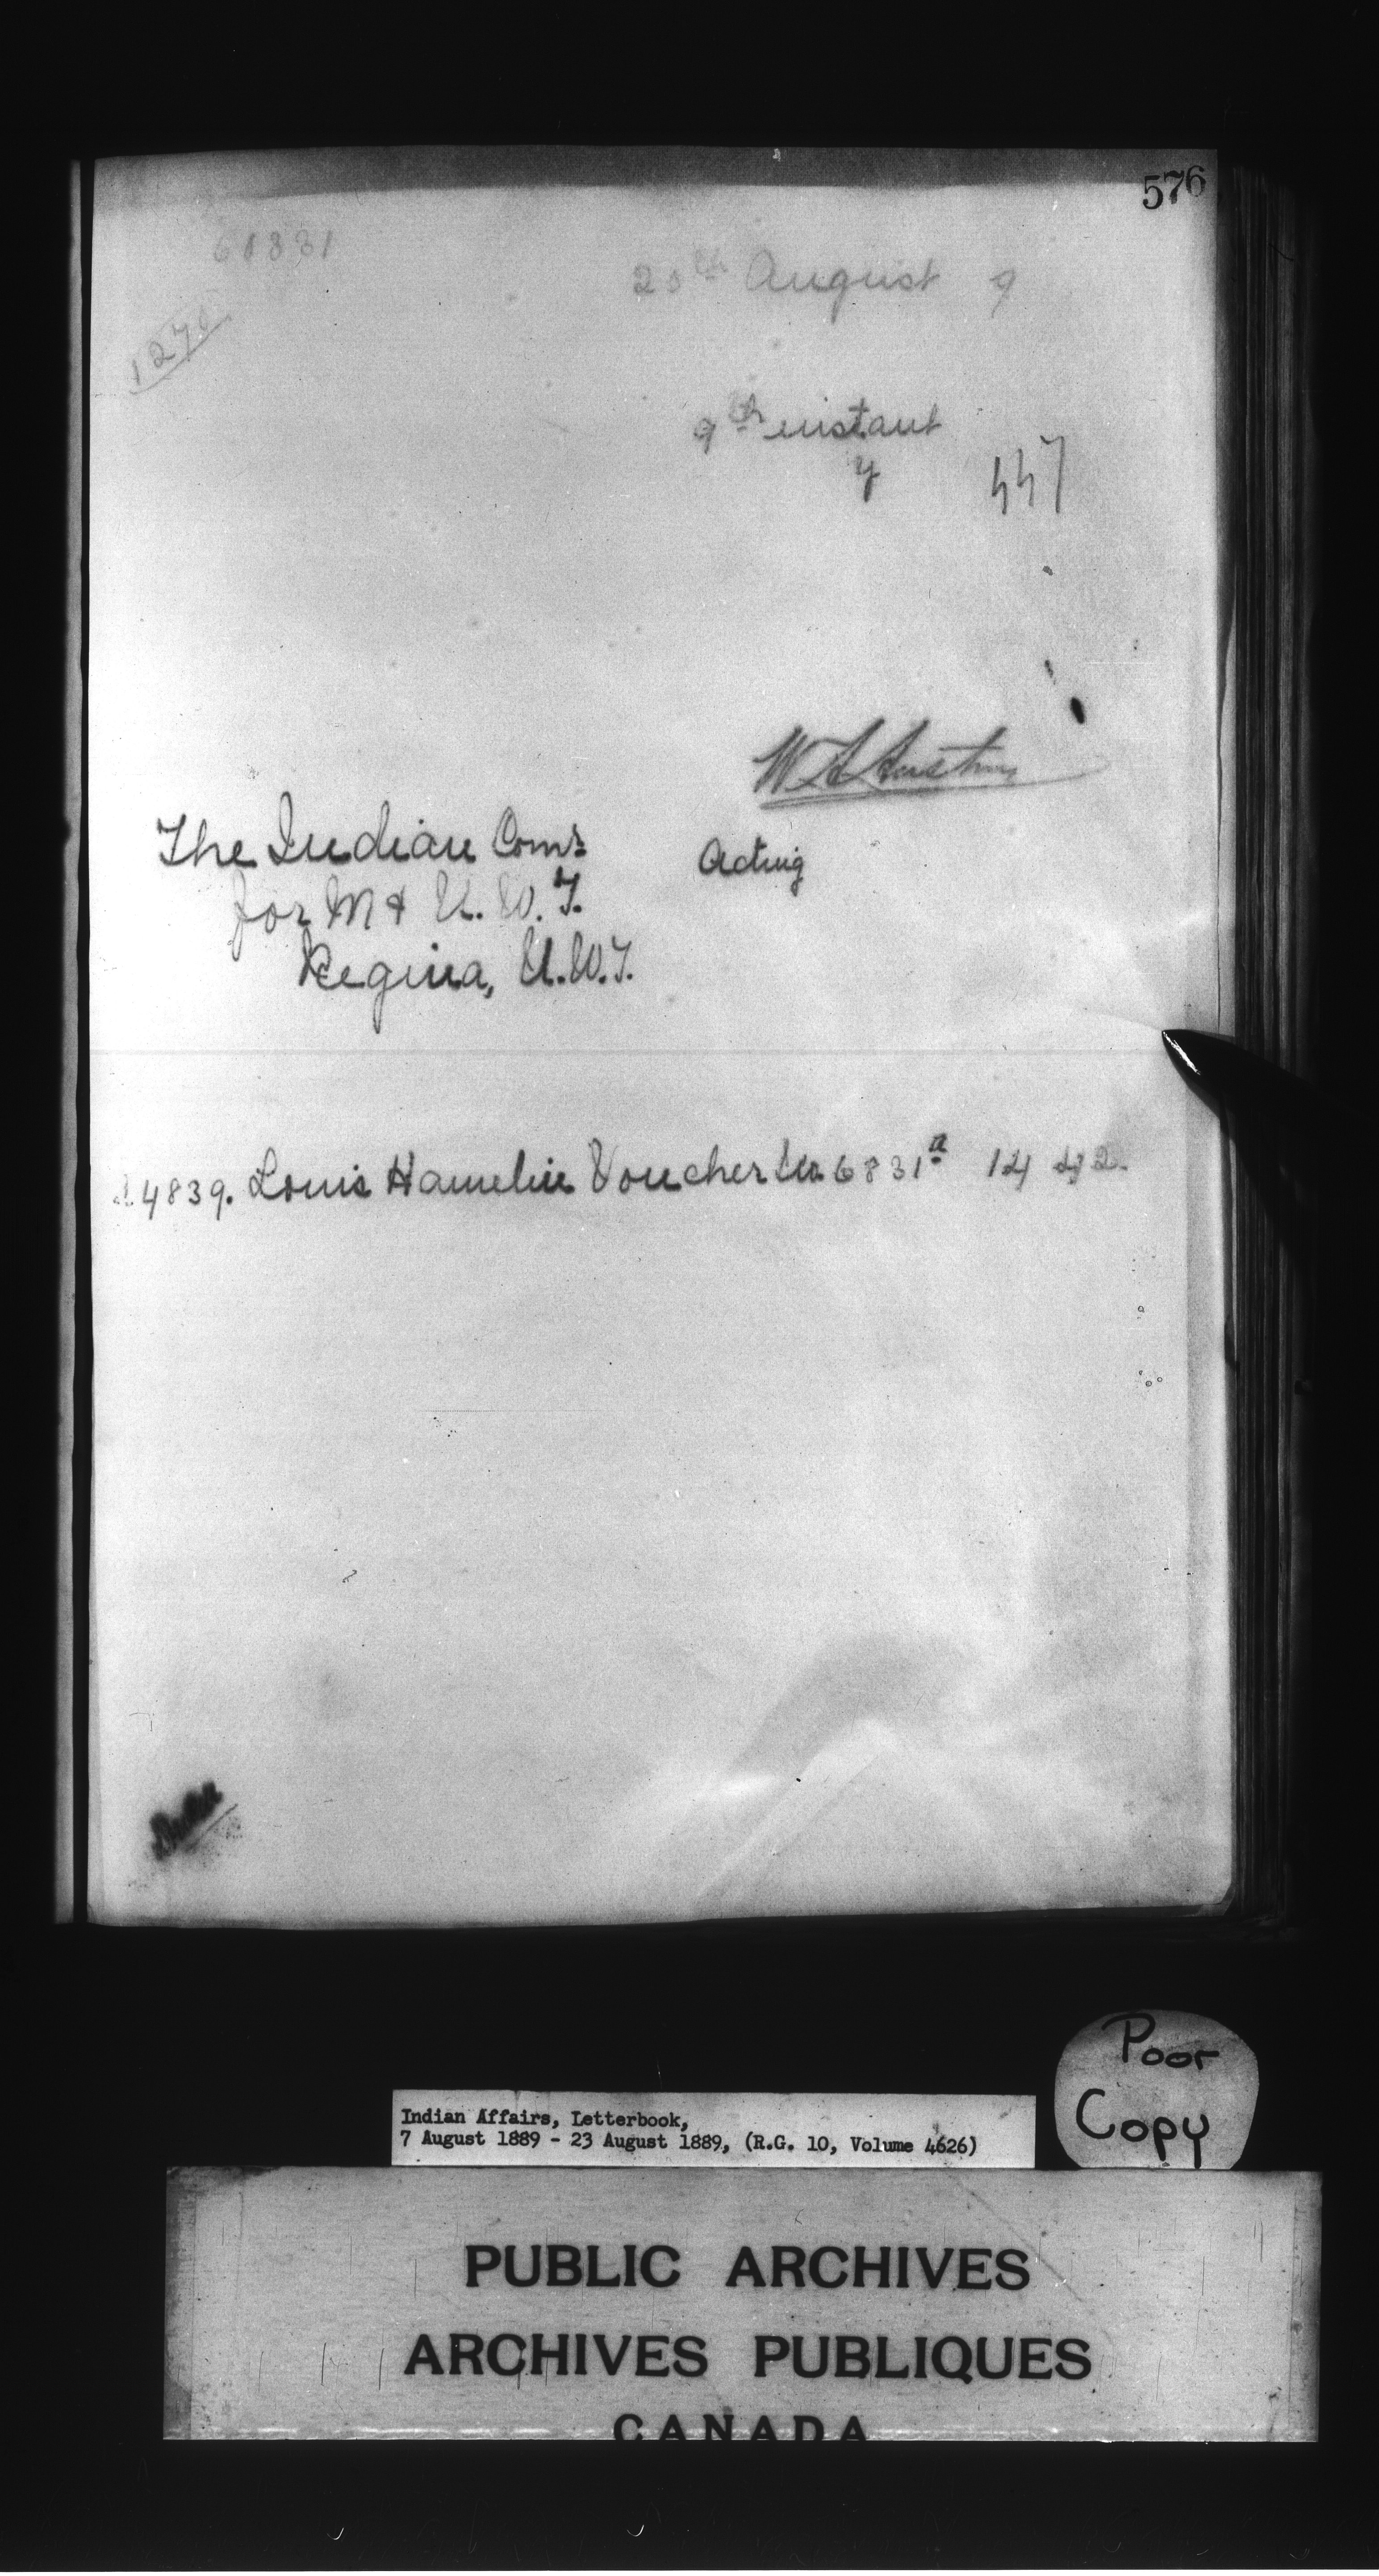 576
61831
20th August 9
127
9th instant
y
447
W A Austin
The Indian Comr
for M & N.W.T.
Acting
Regina, N.W.T.
4839. Louis Hamelin Voucher No. 6831a 14 42
Poor
Copy
Indian Affairs, Letterbook,
7 August 1889 - 23 August 1889, (R.G. 10, Volume 4626)
PUBLIC ARCHIVES
ARCHIVES PUBLIQUES
CANADA